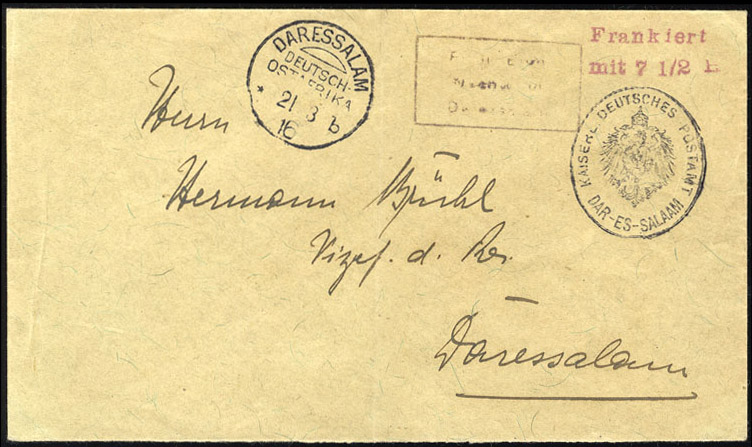 DARESSALAM
DEUTSCH-
OSTAFRIKA
* 21 3 b
16
Frankiert
mit 7 1/2 H
KAISERL. DEUTSCHES POSTAMT
DAR-ES-SALAAM
Herrn
Hermann Brühl
Vizef. d. Res.
Daressalam